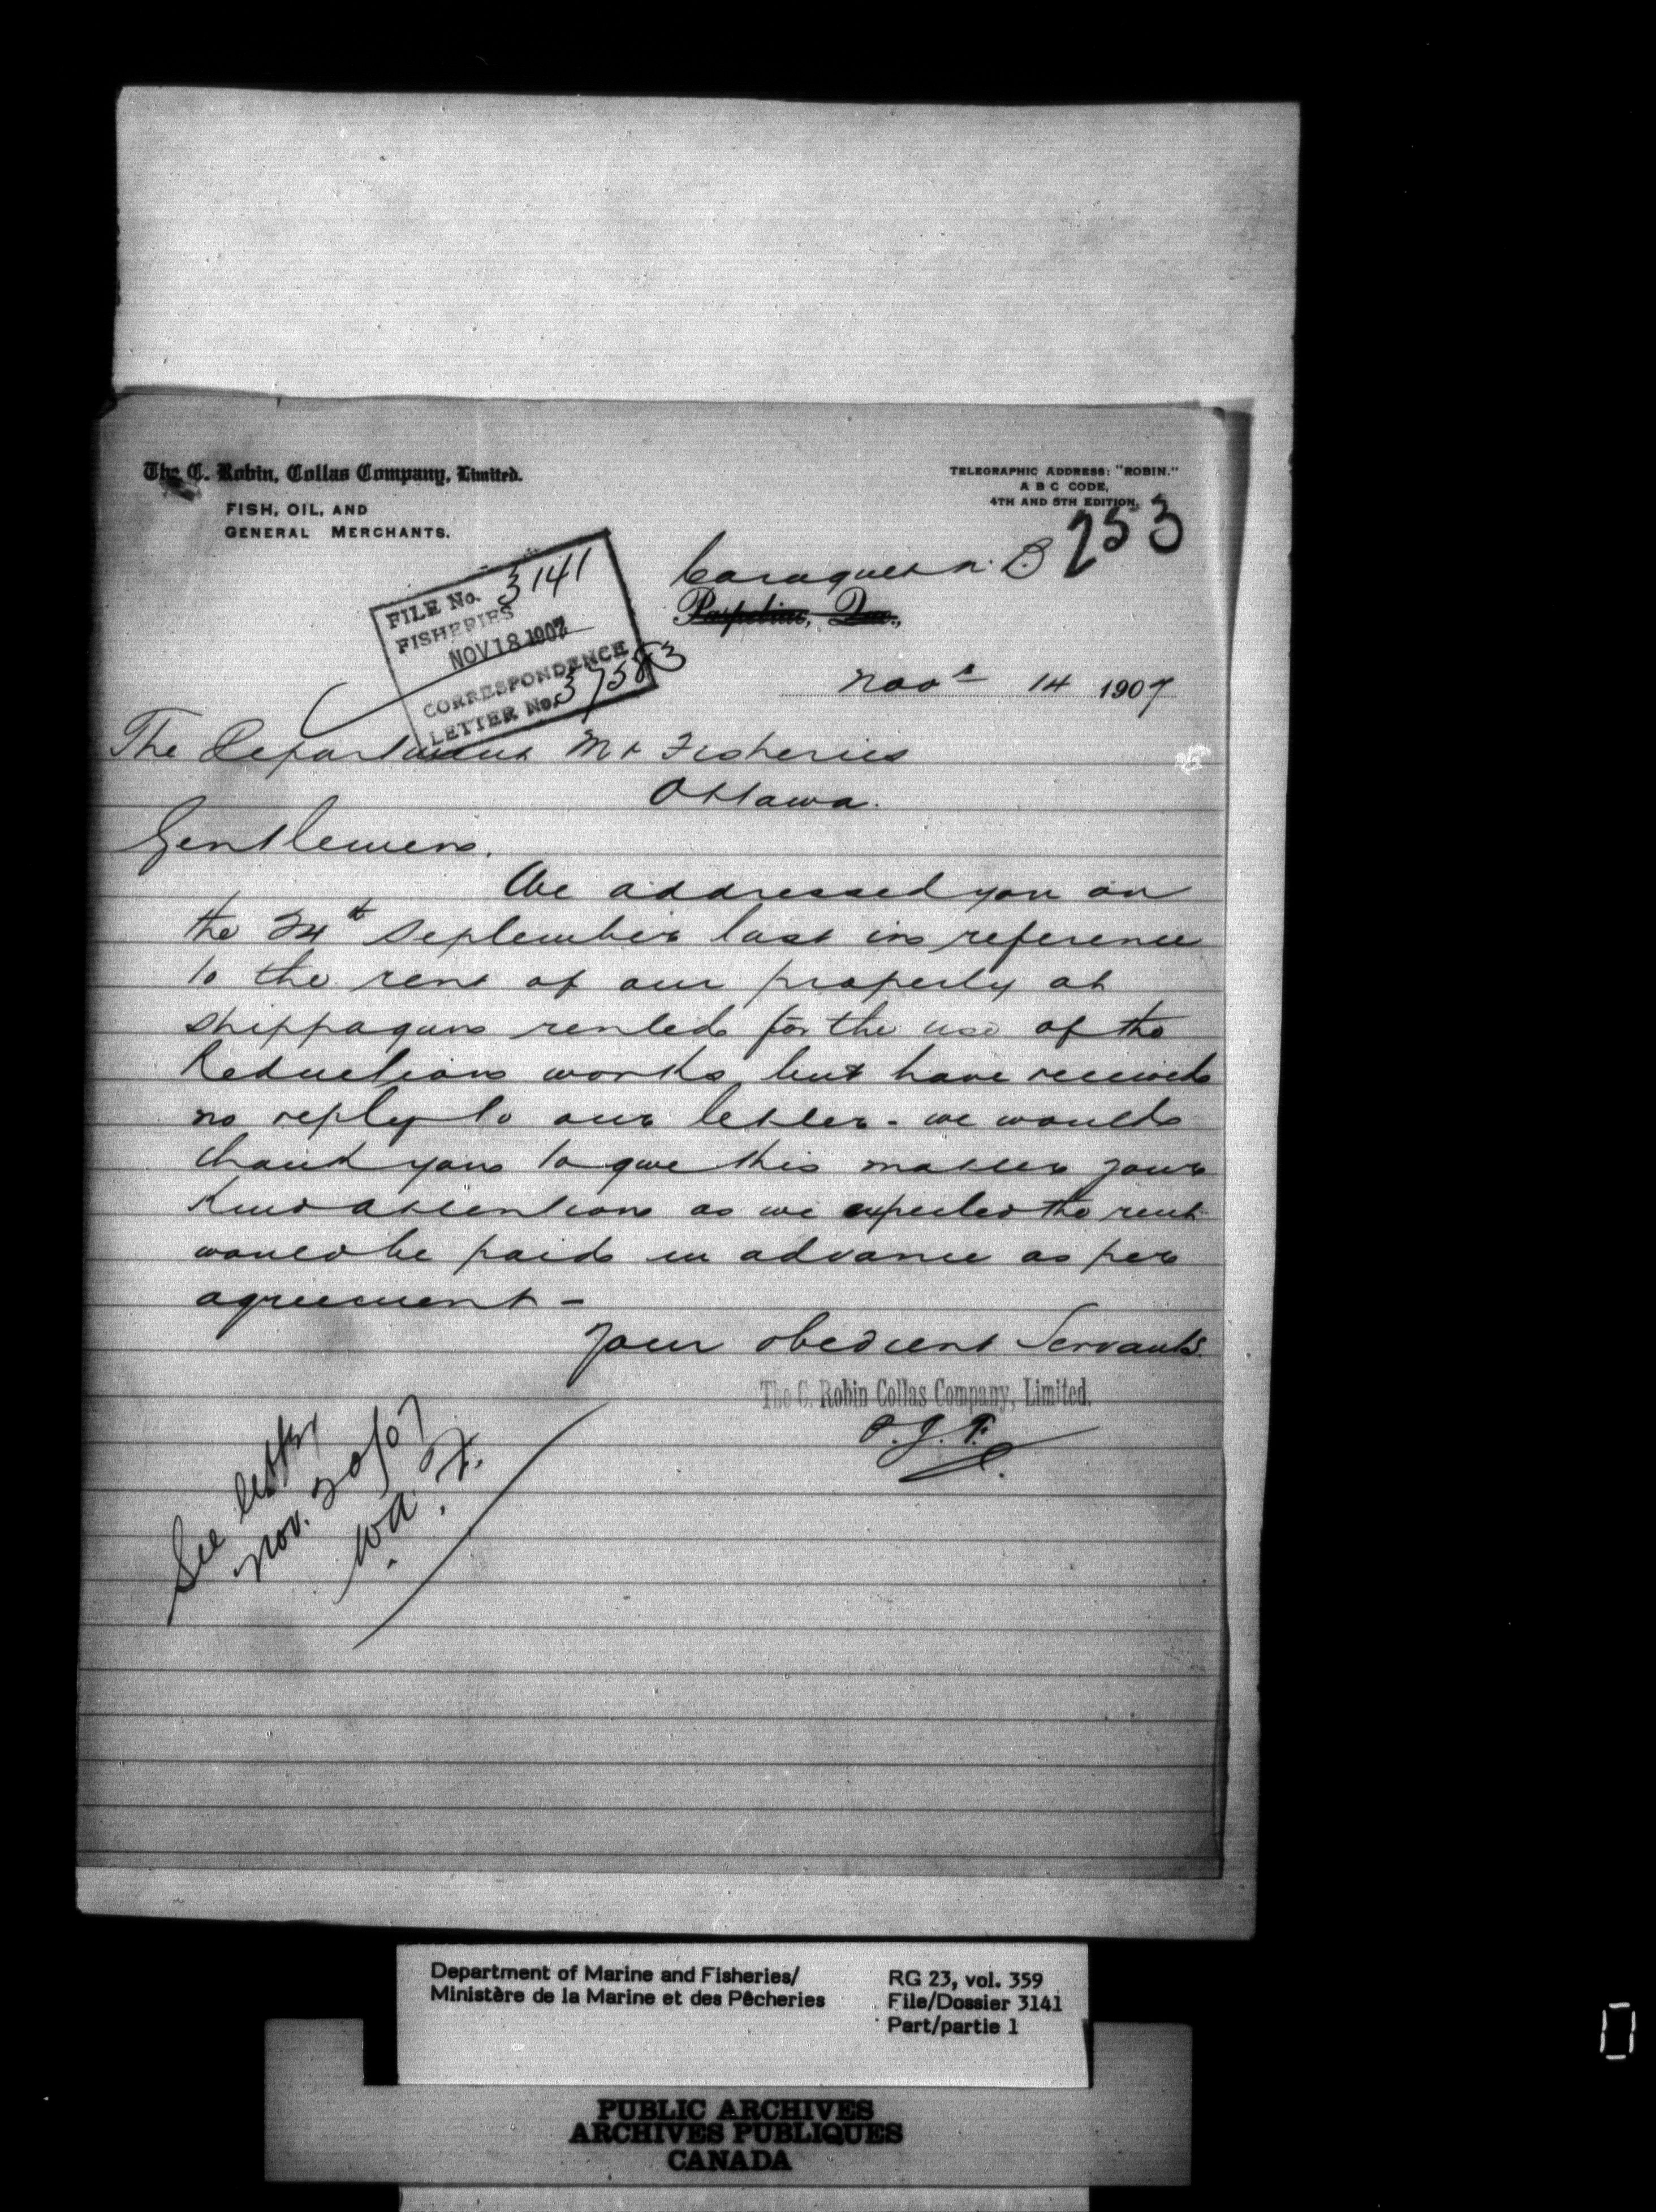 The C. Robin, Collas Company, Limited.
FISH, OIL, AND
GENERAL MERCHANTS.
TELEGRAPHIC ADDRESS: "ROBIN."
A B C CODE,
4TH AND 5TH EDITION.
253
Caraquet N. B
Paspebiac, Que.,
FILE No. 3141
FISHERIES
NOV 18 1907
CORRESPONDENCE
LETTER No. 37583
Novr 14 1907
The Department M & Fisheries
Ottawa.
Gentlemen.
We addressed you on
the 24th September last in reference
to the rent of our property at
Shippagan rented for the use of the
Reduction works but have received
no reply to our letter - we would
thank you to give this matter your
kind attention as we expected the rent
would be paid in advance as per
agreement -
Your obedient Servants.
The C. Robin Collas Company, Limited.
See letter
Nov. 20/07
W.A.F.
Department of Marine and Fisheries/
Ministère de la Marine et des Pêcheries
RG 23, vol. 359
File/Dossier 3141
Part/partie 1
PUBLIC ARCHIVES
ARCHIVES PUBLIQUES
CANADA